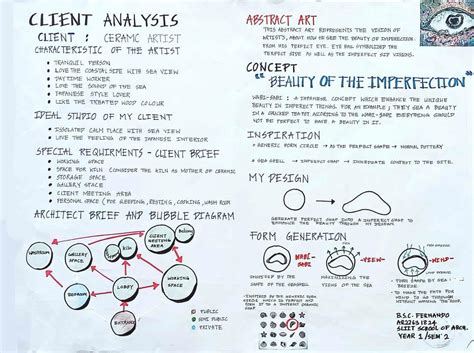 CLIENT ANALYSIS
CLIENT : CERAMIC ARTIST
CHARACTERISTIC OF THE ARTIST
• TRANQUIL PERSON
• LOVE THE COASTAL SIDE WITH SEA VIEW
• DAYTIME WORKER
• LOVE THE SOUND OF THE SEA
• JAPANESE STYLE LOVER
• LIKE THE TREATED WOOD COLOUR
IDEAL STUDIO OF MY CLIENT
• ISOLATED CALM PLACE WITH SEA VIEW
• LOVE THE FEELING OF THE JAPANESE INTERIOR
SPECIAL REQUIRMENTS - CLIENT BRIEF
• WORKING SPACE
• SPACE FOR KILN CONSIDER THE KILN AS MOTHER OF CERAMIC
• STORAGE SPACE
• GALLERY SPACE
• CLIENT MEETING AREA
• PERSONAL SPACE (FOR SLEEPING, RESTING, COOKING, WASH ROOM
ARCHITECT BRIEF AND BUBBLE DIAGRAM
WASHROOM
GALLERY SPACE
KILN
CLIENT MEETING AREA
Balcony
WORKING SPACE
LOBBY
ENTRANCE
PUBLIC
SEMI PUBLIC
PRIVATE
ABSTRACT ART
THIS ABSTRACT ART REPRESENTS THE VISION OF
ARTIST'S, ABOUT HOW HE SEE THE BEAUTY OF IMPERFECTION
FROM HIS PERFECT EYE. EYE BALL SYMBOLIZED THE
PERFECT SIDE AS WELL AS THE IMPERFECT SIDE VISIONS.
CONCEPT
" BEAUTY OF THE IMPERFECTION "
WABI-SABI : A JAPANESE CONCEPT WHICH ENHANCE THE UNIQUE
BEAUTY IN IMPERFECT THINGS. FOR AN EXAMPLE ; THEY SEE A BEAUTY
IN A CRACKED TEA SET. ACCORDING TO THE WABI-SABI EVERYTHING SHOULD
NOT BE PERFECT TO HAVE A BEAUTY IN IT.
INSPIRATION
• GENERIC FORM CIRCLE → AS THE PERFECT SHAPE → NORMAL POTTERY
• SEA SHELL → IMPERFECT SHAPE → IMMEDIATE CONTEXT TO THE SITE.
MY DESIGN
GENERATE PERFECT SHAPE INTO A IMPERFECT SHAPE
ENHANCE THE BEAUTY THROUGH MY DESIGN.
FORM GENERATION
WABI-SABI
VIEW
WIND
INSPIRED BY THE
SHAPE OF SEA SHELL
MAXIMIZING THE
VIEWS OF THE SEA
B.S.C. FERNANDO
SLIIT SCHOOL OF ARCH.
YEAR 1 / SEM 2